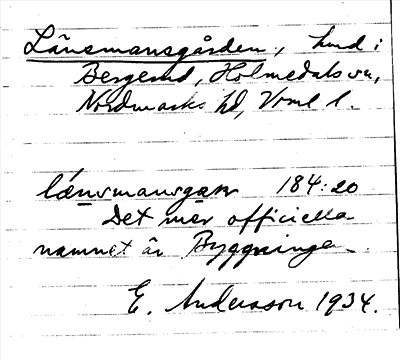 Länsmansgården, hmd i
Bergerud, Holmedals sn,
Nordmarks hd, Vrml l.
länsmansgaɷn 184:20
Det mer officiella
namnet är Byggninga
E. Andersson 1934.